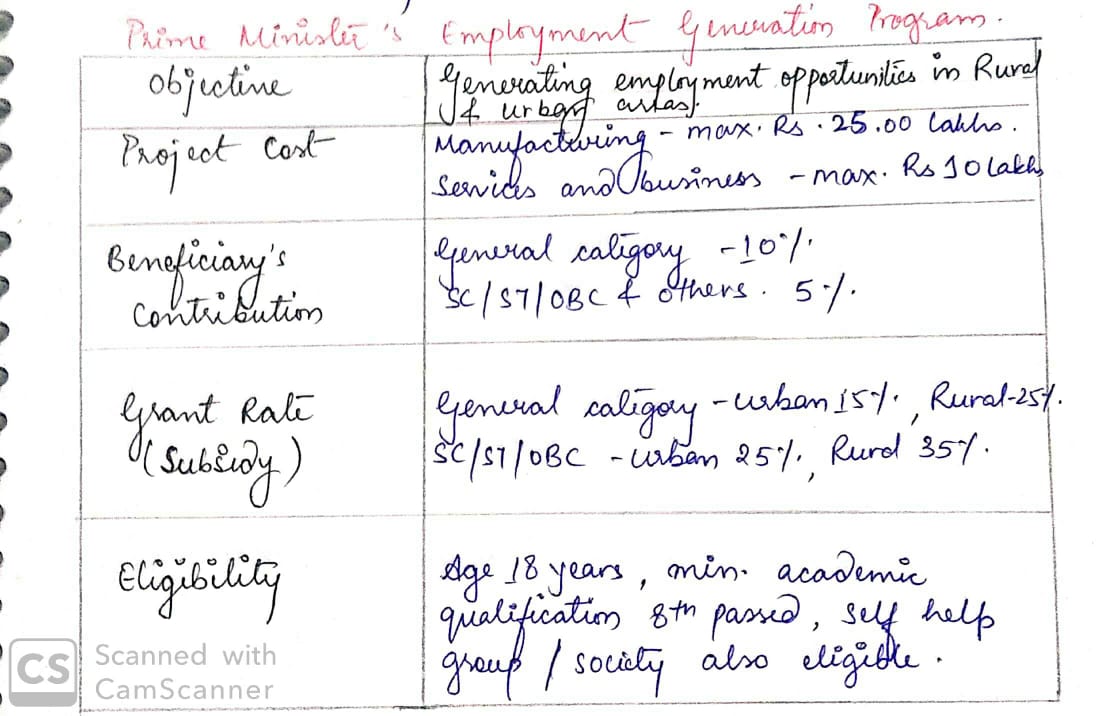 Prime Minister's Employment Generation Program.
Objective
Generating employment opportunities in Rural
& urban areas.
Project Cost
Manufacturing - max. Rs. 25.00 lakhs.
Services and business - max. Rs 10 lakhs
Beneficiary's
Contribution
General category - 10%.
SC/ST/OBC & others. 5%.
Grant Rate
(Subsidy)
General category - urban 15%., Rural-25%.
SC/ST/OBC - urban 25%., Rural 35%.
Eligibility
Age 18 years, min. academic
qualification 8th passed, self help
group / society also eligible.
CS Scanned with
CamScanner